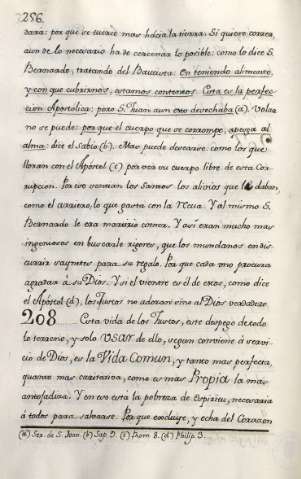 256.
dara: por que se tuerce mas hacia la tierra. Si quiere correr,
aun de lo necesario ha de cercenar lo posible: como lo dice S.
Bernardo, tratando del Bautista. En teniendo alimento,
y con que cubrirnos, estamos contentos. Esta es la perfec-
ción Apostolica: pero S. Juan aun eso desechaba (a). Volar
no se puede: por que el cuerpo que se corrompe, apesga al
alma: dice el Sabio (b). Mas puede desearse: como los que
lloran con el Apóstol (c) por ver su cuerpo libre de esta Cor-
rupcion. Por eso los Santos los alivios que le daban,
como el arriero, lo que gasta con la recua. Y al mismo S.
Bernardo le era martirio comer. Y asi eran mucho mas
ingeniosos en buscarle rigores, que los mundanos en dis-
currir saynetes para su regalo. Por que cada uno procura
agradar á su Dios. Y si el vientre es el de esos, como dice
el Apóstol (d), los Justos no adoran sino al Dios verdadero.
208 Esta vida de los Justos, este despego de todo
lo terreno, y solo usar de ello, segun conviene á servi-
cio de Dios, es la Vida Comun, y tanto mas perfecta,
quanto mas caritativa, como es mas Propia la mas
Y en eso está la pobreza de Espiritu, necesaria
á todos para salvarse. Por que excluye, y echa del Corazon
(a) Ser. de S. Joan (b) Sap. 9. (c) Rom. 8. (d) Philip. 3.